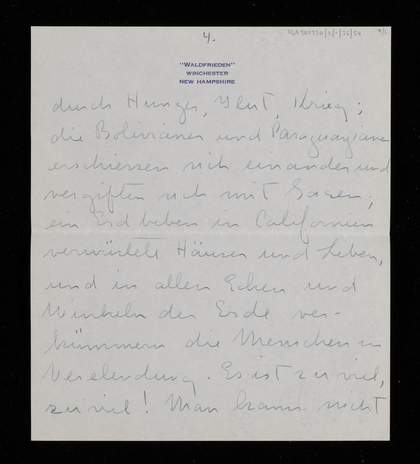 4.
"WALDFRIEDEN"
WINCHESTER
NEW HAMPSHIRE
durch Hunger, Krieg;
die Bolivianer und Paraguayaner
erschiessen sich einander und
vergiften sich mit Gasen;
ein Erdbeben in Californien
Häuser und Leben,
und in allen Ecken und
Winkeln der Erde ver-
kümmern die Menschen in
Verelendung. Es ist zu viel,
zu viel! Man kann nicht